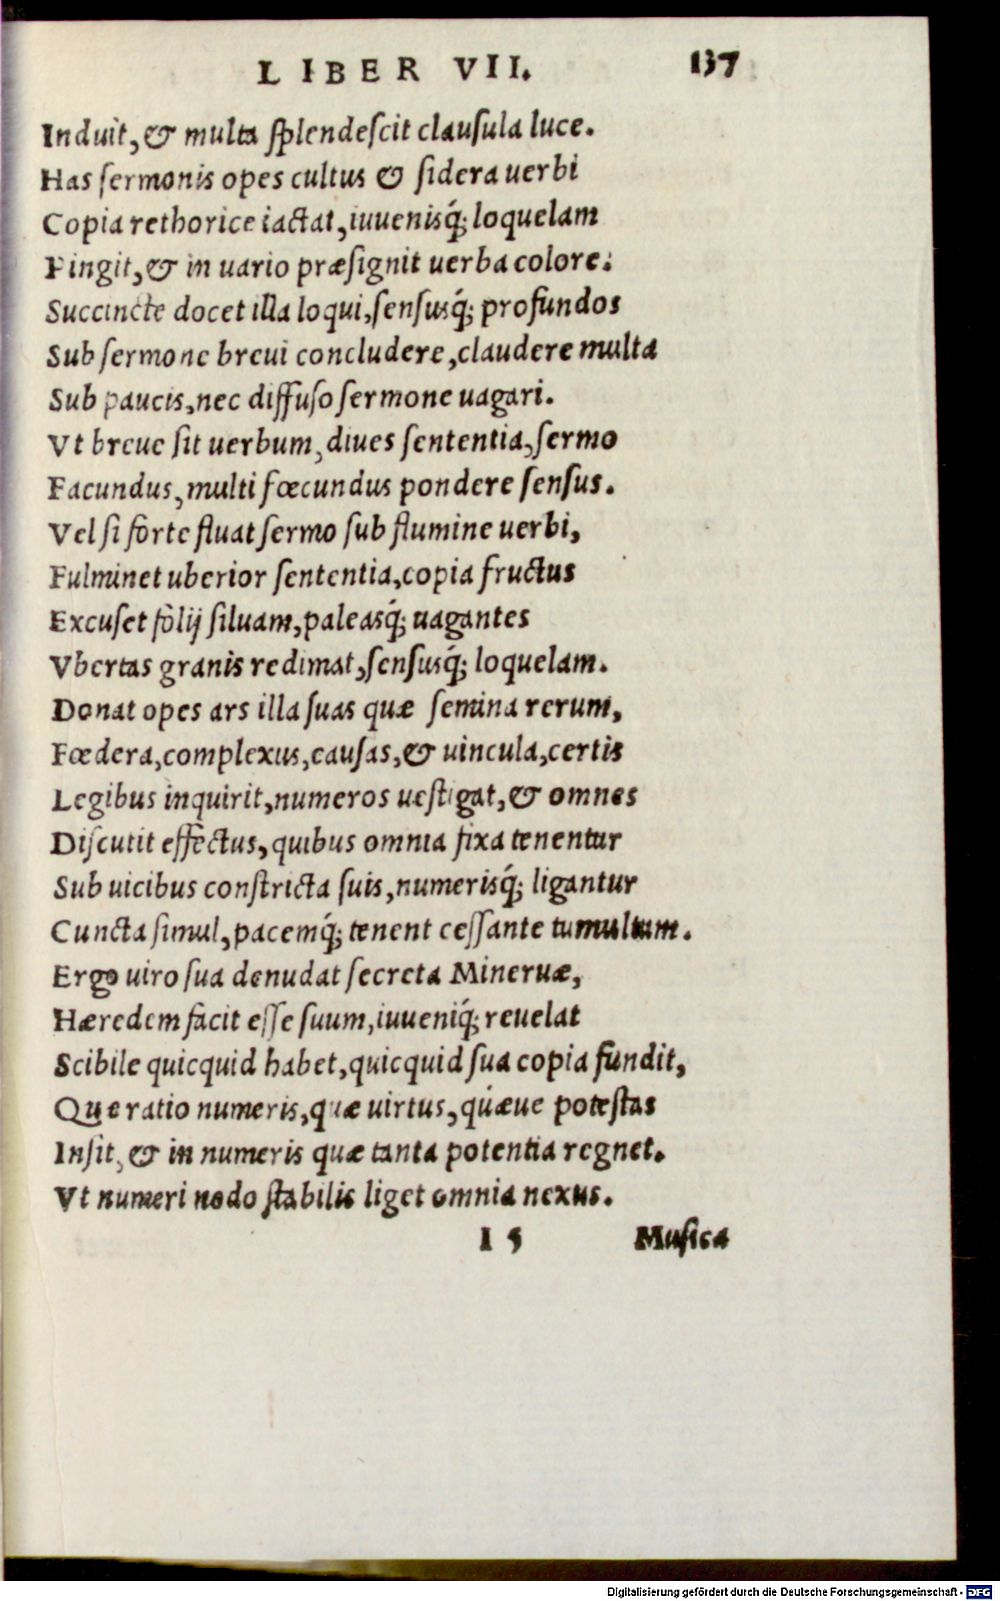 LIBER VII. 137
Induit, & multa ſplendeſcit clauſula luce.
Has ſermonis opes cultus & ſidera uerbi
Copia rethorice iactat, iuueniſq́; loquelam
Pingit, & in uario præſignit uerba colore:
Succincte docet illa loqui, ſenſuſq́; profundos
Sub ſermone breui concludere, claudere multa
Sub paucis, nec diffuſo ſermone uagari.
Vt breue ſit uerbum, diues ſententia, ſermo
Facundus, multi fœcundus pondere ſenſus.
Vel ſi forte fluat ſermo ſub flumine uerbi,
Fulminet uberior ſententia, copia fructus
Excuſet folij ſiluam, paleaſq́; uagantes
Vbertas granis redimat, ſenſuſq́; loquelam.
Donat opes ars illa ſuas quæ ſemina rerum,
Fœdera, complexus, cauſas, & uincula, certis
Legibus inquirit, numeros ueſtigat, & omnes
Diſcutit effectus, quibus omnia fixa tenentur
Sub uicibus conſtricta ſuis, numeriſq́; ligantur
Cuncta ſimul, pacemq́; tenent ceſſante tumultum.
Ergo uiro ſua denudat ſecreta Mineruæ,
Hæredem facit eſſe ſuum, iuueniq́; reuelat
Scibile quicquid habet, quicquid ſua copia fundit,
Que ratio numeris, quæ uirtus, quæue poteſtas
Inſit, & in numeris quæ tanta potentia regnet.
Vt numeri nodo ſtabilis liget omnia nexus.
I 5 Muſica
Digitalisierung gefördert durch die Deutsche Forschungsgemeinschaft - DFG